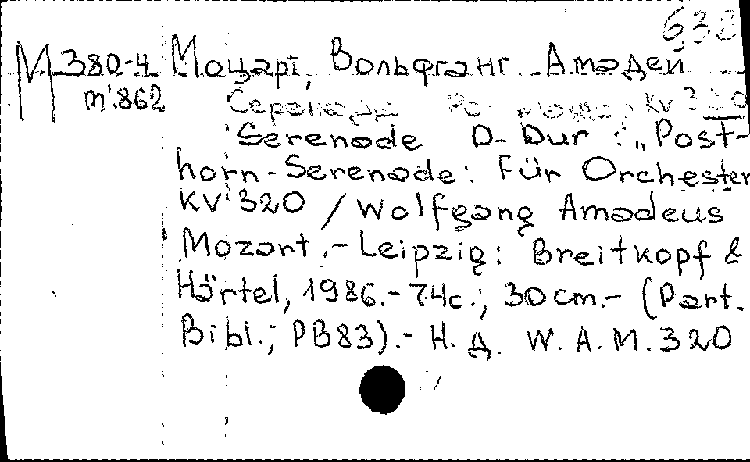 638
М 380-4 Моцарт, Вольфганг Амадей
m.862 Серенада Ре мажор, KV 320
Serenade D-Dur: "Post-
horn-Serenade: Für Orchester
KV 320 / Wolfgang Amadeus
Mozart.- Leipzig: Breitkopf &
Härtel, 1986.- 74c.; 30cm.- (Part.
Bibl.; PB83).- Н. д. W. A. M. 320